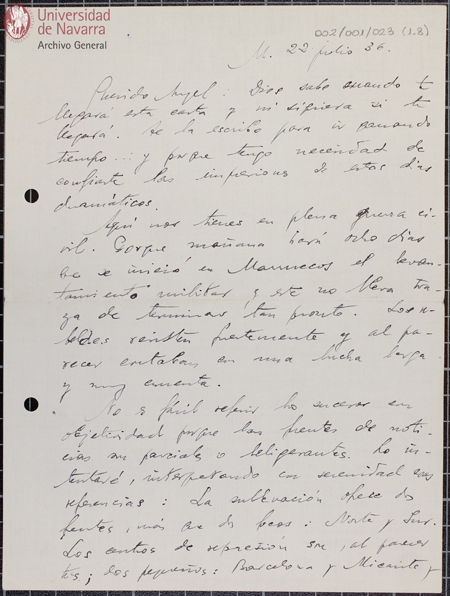 Universidad
de Navarra
Archivo General
002/001/023 (1-8)
M. 22 julio 36.
Querido Angel: Dios sabe cuando te
llegará esta carta y ni siquiera si te
llegará. Te la escribo para ir ganando
tiempo... y porque tengo necesidad de
confiarte las impresiones de estos días
dramáticos.
Aquí nos tienes en plena guerra ci-
vil. Porque mañana hará ocho días
que se inició en Marruecos el levan-
tamiento militar y este no lleva tra-
za de terminar tan pronto. Los re-
beldes resisten fuertemente y al pa-
recer entablan una lucha larga
y muy cruenta.
No es fácil referir los sucesos con
objetividad porque las fuentes de noti-
cias son parciales o beligerantes. Lo in-
tentaré, interpretando con serenidad esas
referencias: La sublevación ofrece dos
frentes, más que dos focos: Norte y Sur.
Los centros de represión son, al parecer
tres; dos pequeños: Barcelona y Alicante y